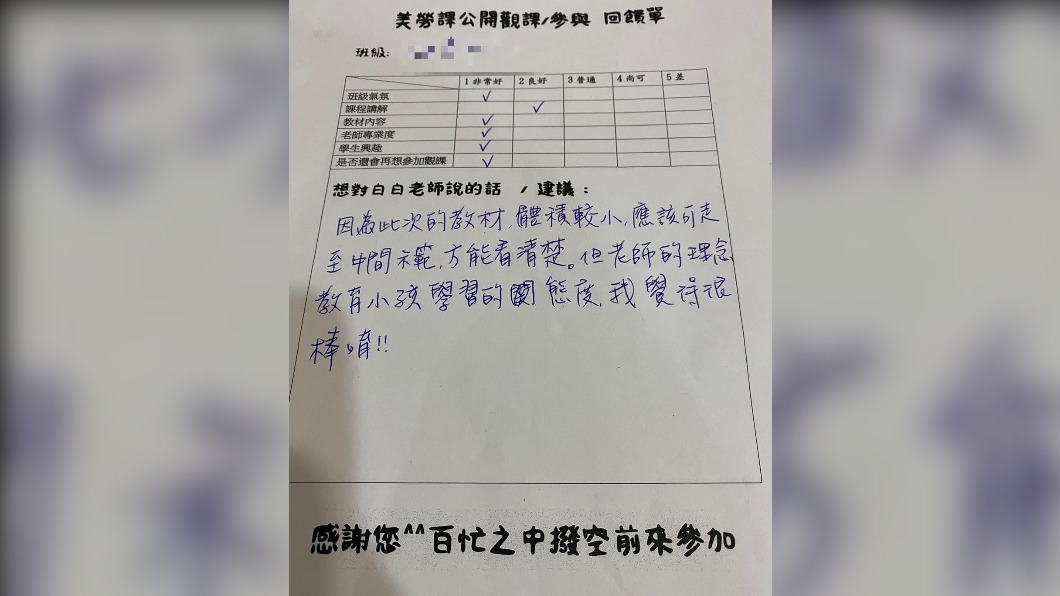 美勞課公開觀課/參與 回饋單
班級:
1非常好 2良好 3普通 4尚可 5差
班級氣氛 ✓
課程講解 ✓
教材內容 ✓
老師專業度 ✓
學生興趣 ✓
是否還會再想參加觀課 ✓
想對白白老師說的話 / 建議:
因為此次的教材,體積較小,應該可走
至中間示範,方能看清楚。但老師的理念
教育小孩學習的態度,我覺得很
棒唷!!
感謝您^^百忙之中撥空前來參加